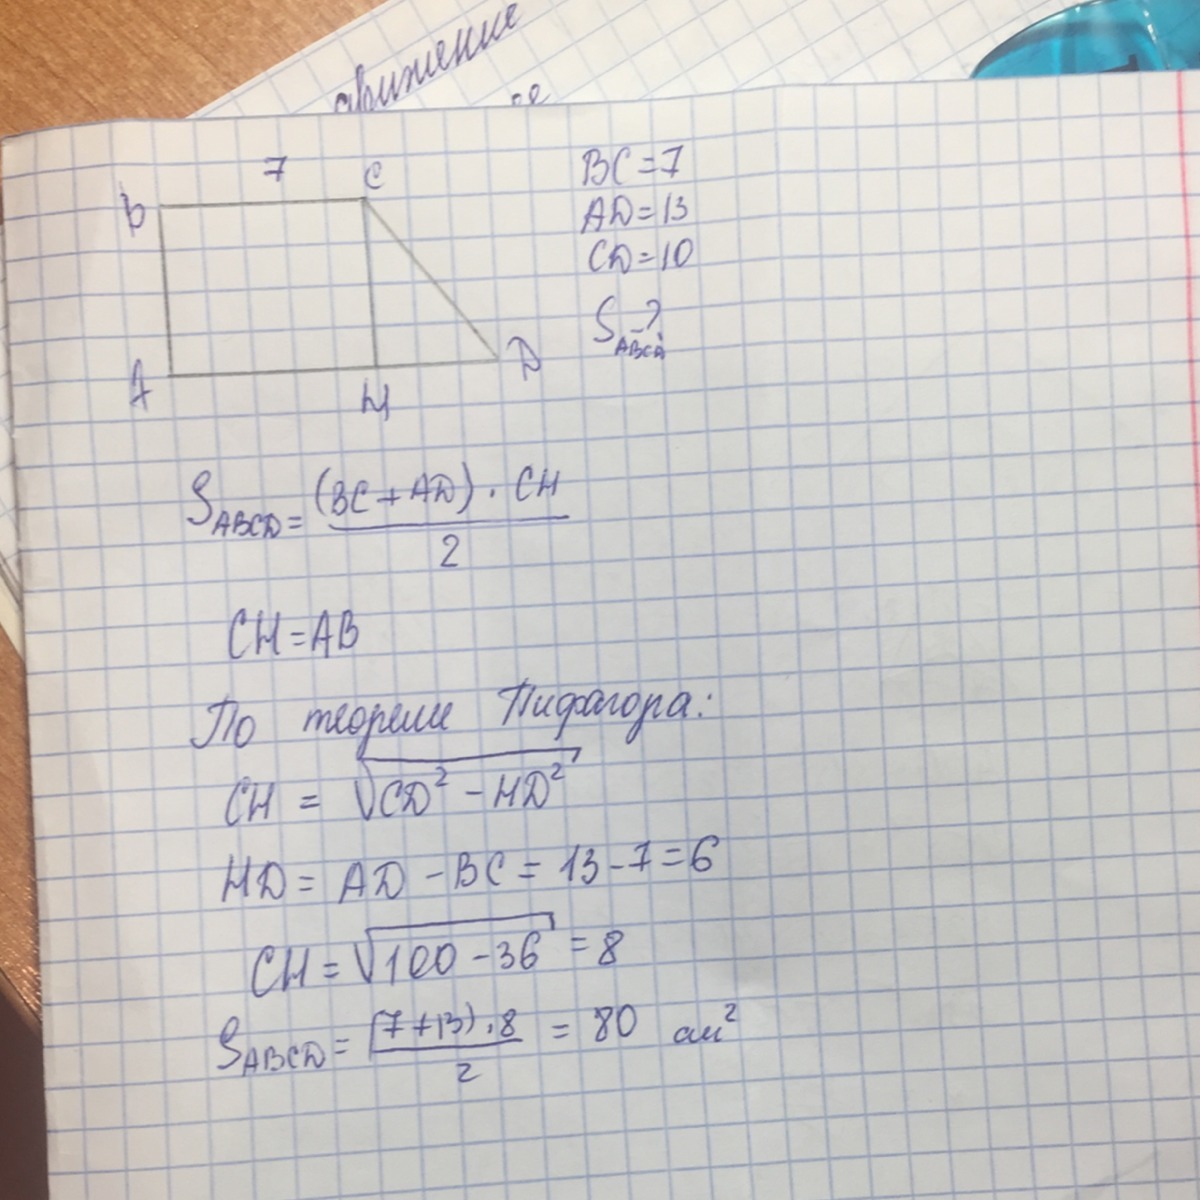 движение
7
B
C
A
H
D
BC=7
AD=13
CD=10
S ABCD -?
S ABCD = (BC+AD) · CH
2
CH=AB
По теореме Пифагора:
CH = √CD² - HD²
HD = AD - BC = 13 - 7 = 6
CH = √100 - 36 = 8
S ABCD = (7+13) · 8 = 80 см²
2